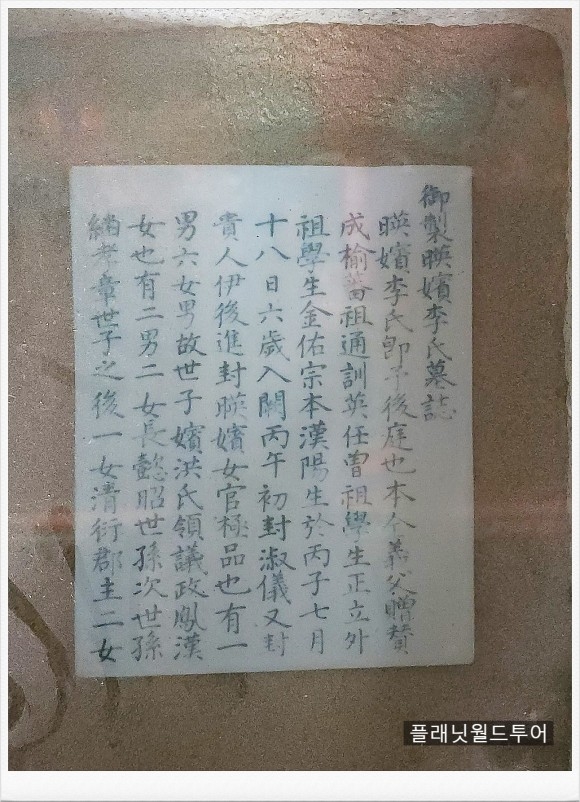 御製暎嬪李氏墓誌
暎嬪李氏卽予後庭也本全義父贈贊
成楡蕃祖通訓英任曾祖學生正立外
祖學生金佑宗本漢陽生於丙子七月
十八日六歲入闕丙午初封淑儀又封
貴人伊後進封暎嬪女官極品也有一
男六女男故世子嬪洪氏領議政鳳漢
女也有二男二女長懿昭世孫次世孫
繼孝章世子之後一女淸衍郡主二女
플래닛월드투어